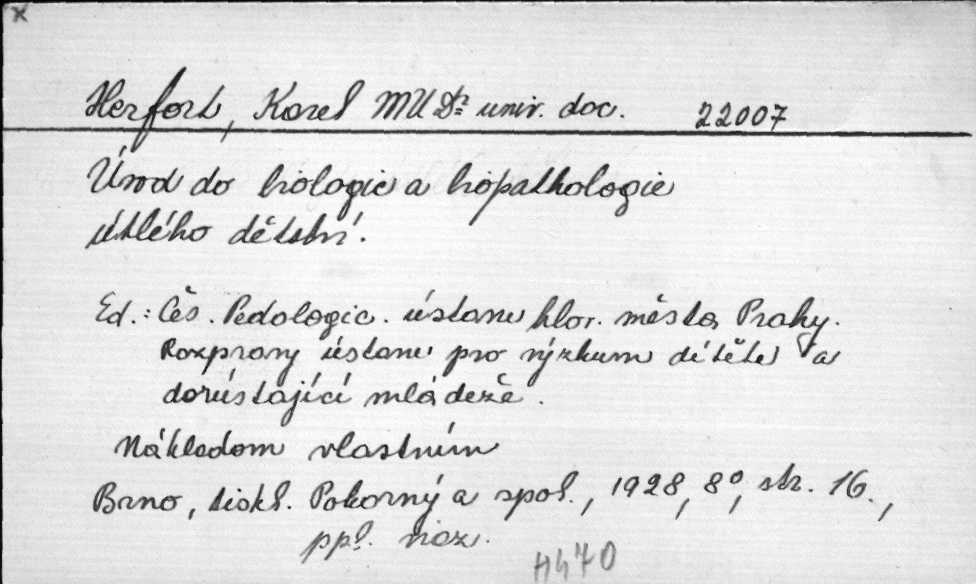 x
Herfort, Karel MUDr. univ. doc. 22007
Úvod do biologie a biopathologie
útlého dětství.
Ed.: Čes. Pedologic. ústavu hlav. města Prahy.
Rozpravy ústavu pro výzkum dítěte a
dorůstající mládeže.
Nákladom vlastním
Brno, tiskl. Pokorný a spol., 1928, 8°, str. 16.,
ppl. viaz.
4470